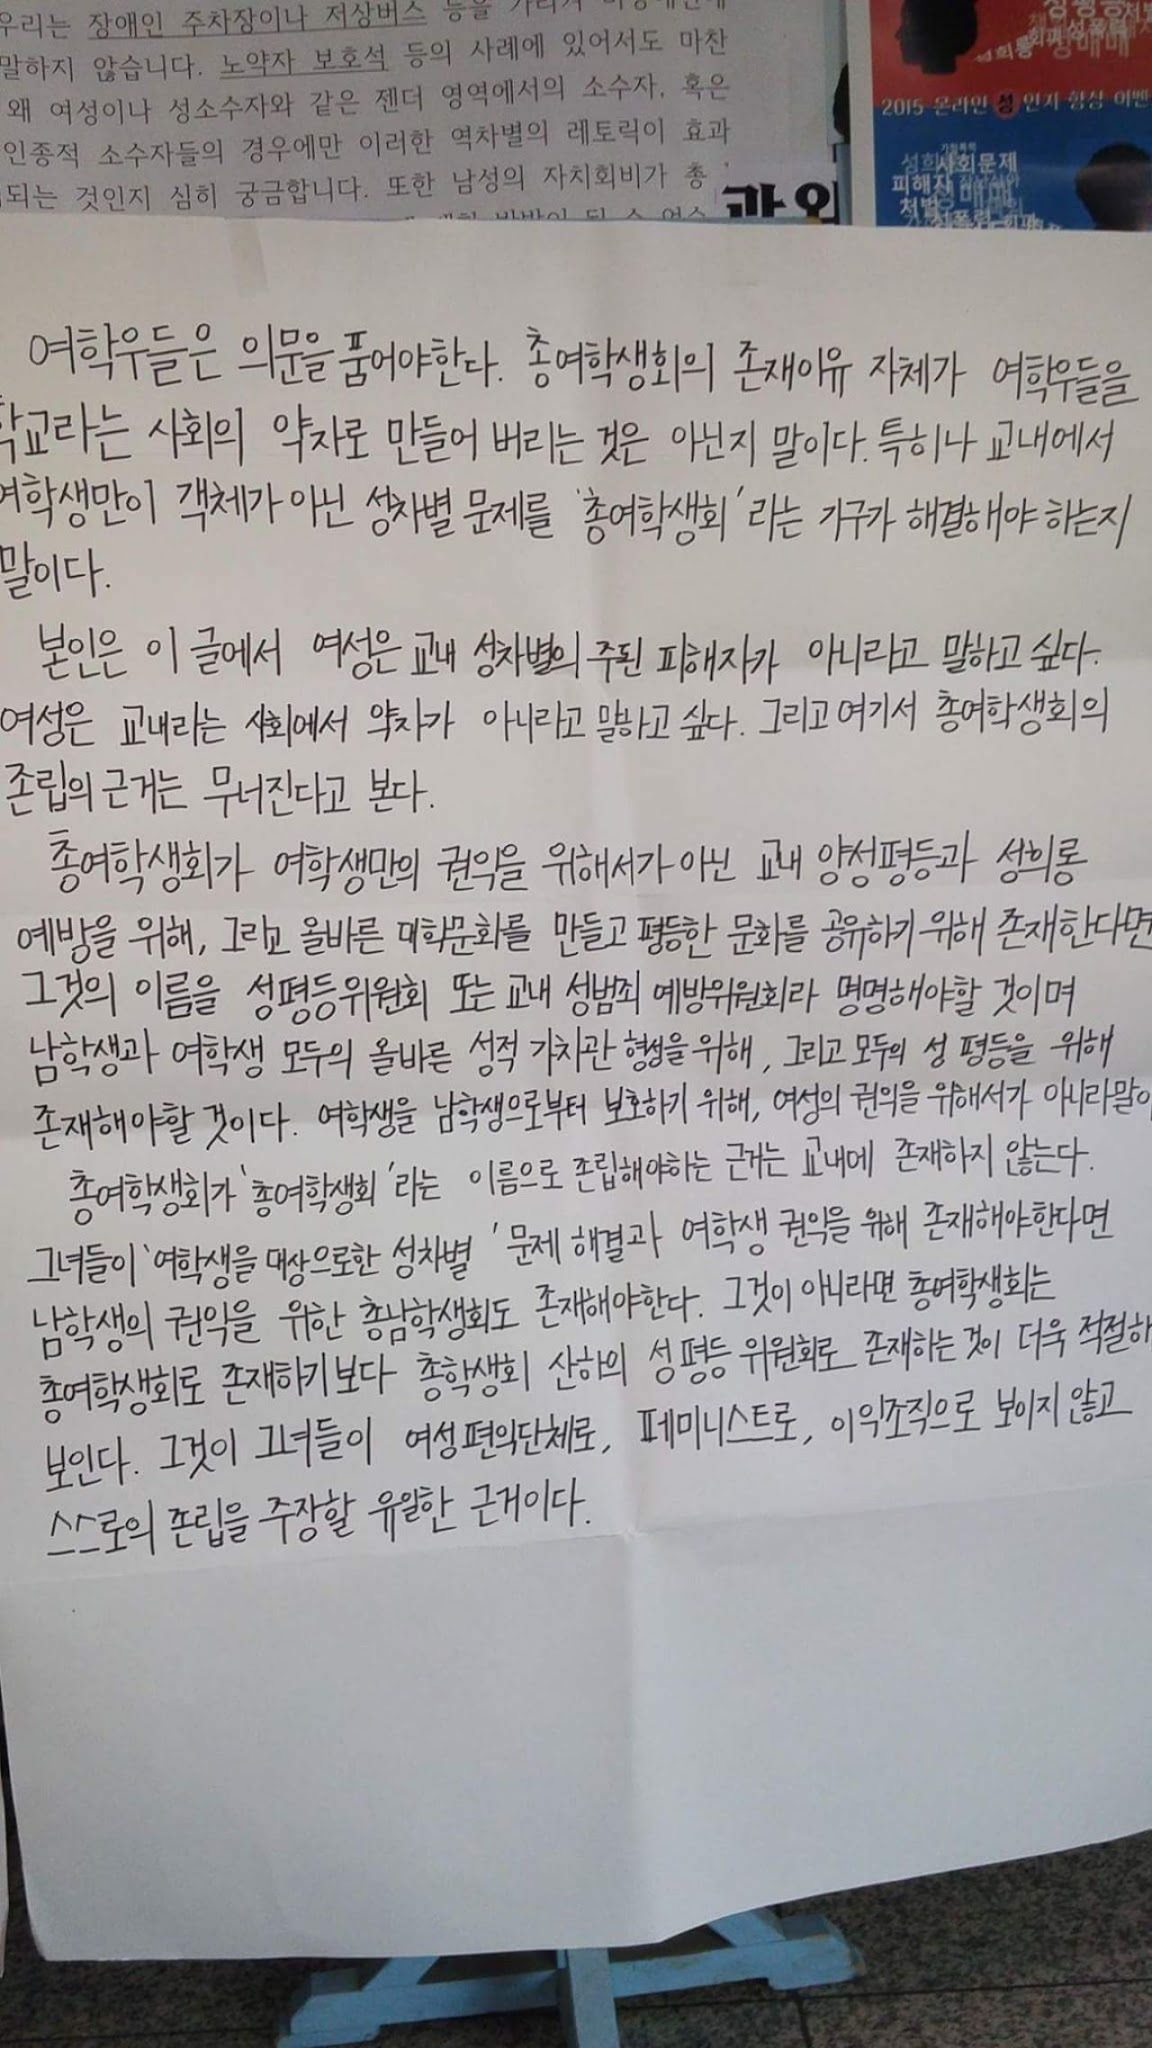 우리는 장애인 주차장이나 저상버스 등을
말하지 않습니다. 노약자 보호석 등의 사례에 있어서도 마찬
왜 여성이나 성소수자와 같은 젠더 영역에서의 소수자, 혹은
인종적 소수자들의 경우에만 이러한 역차별의 레토릭이 효과
되는 것인지 심히 궁금합니다. 또한 남성의 자치회비가 총
과외
성희롱
성매매
2015 온라인 성 인지 향상 이벤
사회문제
피해자
처벌
성폭력
여학우들은 의문을 품어야한다. 총여학생회의 존재이유 자체가 여학우들을
학교라는 사회의 약자로 만들어 버리는 것은 아닌지 말이다. 특히나 교내에서
여학생만이 객체가 아닌 성차별 문제를 '총여학생회'라는 기구가 해결해야 하는지
말이다.
본인은 이 글에서 여성은 교내 성차별의 주된 피해자가 아니라고 말하고 싶다.
여성은 교내라는 사회에서 약자가 아니라고 말하고 싶다. 그리고 여기서 총여학생회의
존립의 근거는 무너진다고 본다.
총여학생회가 여학생만의 권익을 위해서가 아닌 교내 양성평등과 성희롱
예방을 위해, 그리고 올바른 대학문화를 만들고 평등한 문화를 공유하기 위해 존재한다면
그것의 이름을 성평등위원회 또는 교내 성범죄 예방위원회라 명명해야할 것이며
남학생과 여학생 모두의 올바른 성적 가치관 형성을 위해, 그리고 모두의 성 평등을 위해
존재해야할 것이다. 여학생을 남학생으로부터 보호하기 위해, 여성의 권익을 위해서가 아니라말이
총여학생회가 '총여학생회'라는 이름으로 존립해야하는 근거는 교내에 존재하지 않는다.
그녀들이 '여학생을 대상으로한 성차별' 문제 해결과 여학생 권익을 위해 존재해야한다면
남학생의 권익을 위한 총남학생회도 존재해야한다. 그것이 아니라면 총여학생회는
총여학생회로 존재하기보다 총학생회 산하의 성평등 위원회로 존재하는 것이 더욱 적절해
보인다. 그것이 그녀들이 여성편익단체로, 페미니스트로, 이익조직으로 보이지 않고
스스로의 존립을 주장할 유일한 근거이다.